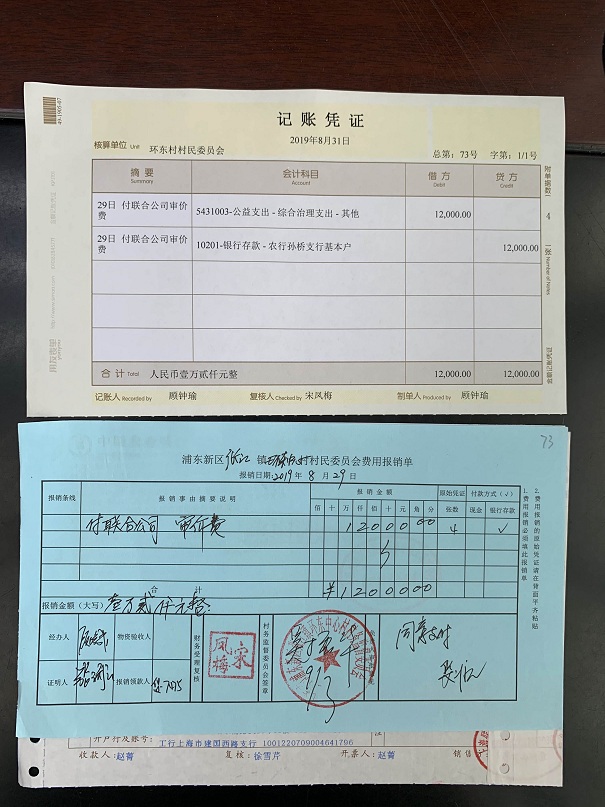 49-1905-07
记账凭证
2019年8月31日
核算单位 Unit 环东村村民委员会
总第：73号 字第：1/1号
摘要 Summary 会计科目 Account 借方 Debit 贷方 Credit
29日 付联合公司审价费 5431003-公益支出 - 综合治理支出 - 其他 12,000.00
29日 付联合公司审价费 10201-银行存款 - 农行孙桥支行基本户 12,000.00
合计 Total 人民币壹万贰仟元整 12,000.00 12,000.00
记账人 Recorded by 顾钟瑜 复核人 Checked by 宋凤梅 制单人 Produced by 顾钟瑜
附单据数 4 张 Number of Notes
金额记账凭证
用友表单
73
浦东新区张江镇 村村民委员会费用报销单
报销日期：2019年8月29日
报销条线 报销事由摘要说明 报销金额 原始凭证 付款方式（√）
佰十万仟佰十元角分 张数 现金 银行存款
付联合公司 审价费 1200000 4 √
合计 ¥1200000
报销金额（大写）壹万贰仟元整
经办人 物资验收人 财务受理复核 宋凤梅 村务监督委员会签章 9/3 同意支付
证明人 报销领款人
1.费用报销必须填此报销单
2.费用报销的原始凭证请在背面平齐粘贴
开户行及账号：工行上海市建国西路支行 1001220709004641796
收款人：赵菁 复核：徐雪芹 开票人：赵菁 销售